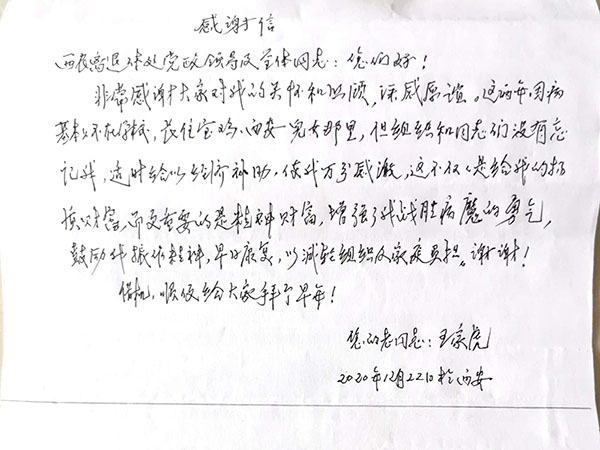 感谢信
西农离退休处党政领导及全体同志：您们好！
非常感谢大家对我的关怀和照顾，深感厚谊。这两年因病
基本不在学校，长住宝鸡、西安儿女那里，但组织和同志们没有忘
记我，适时给以经济补助，使我万分感激，这不仅仅是给我的物
质财富，而更重要的是精神财富，增强了我战胜病魔的勇气，
鼓励我振作精神，早日康复，以减轻组织及家庭负担。谢谢！
借机，顺便给大家拜个早年！
您的老同志：王宗虎
2020年12月22日于西安